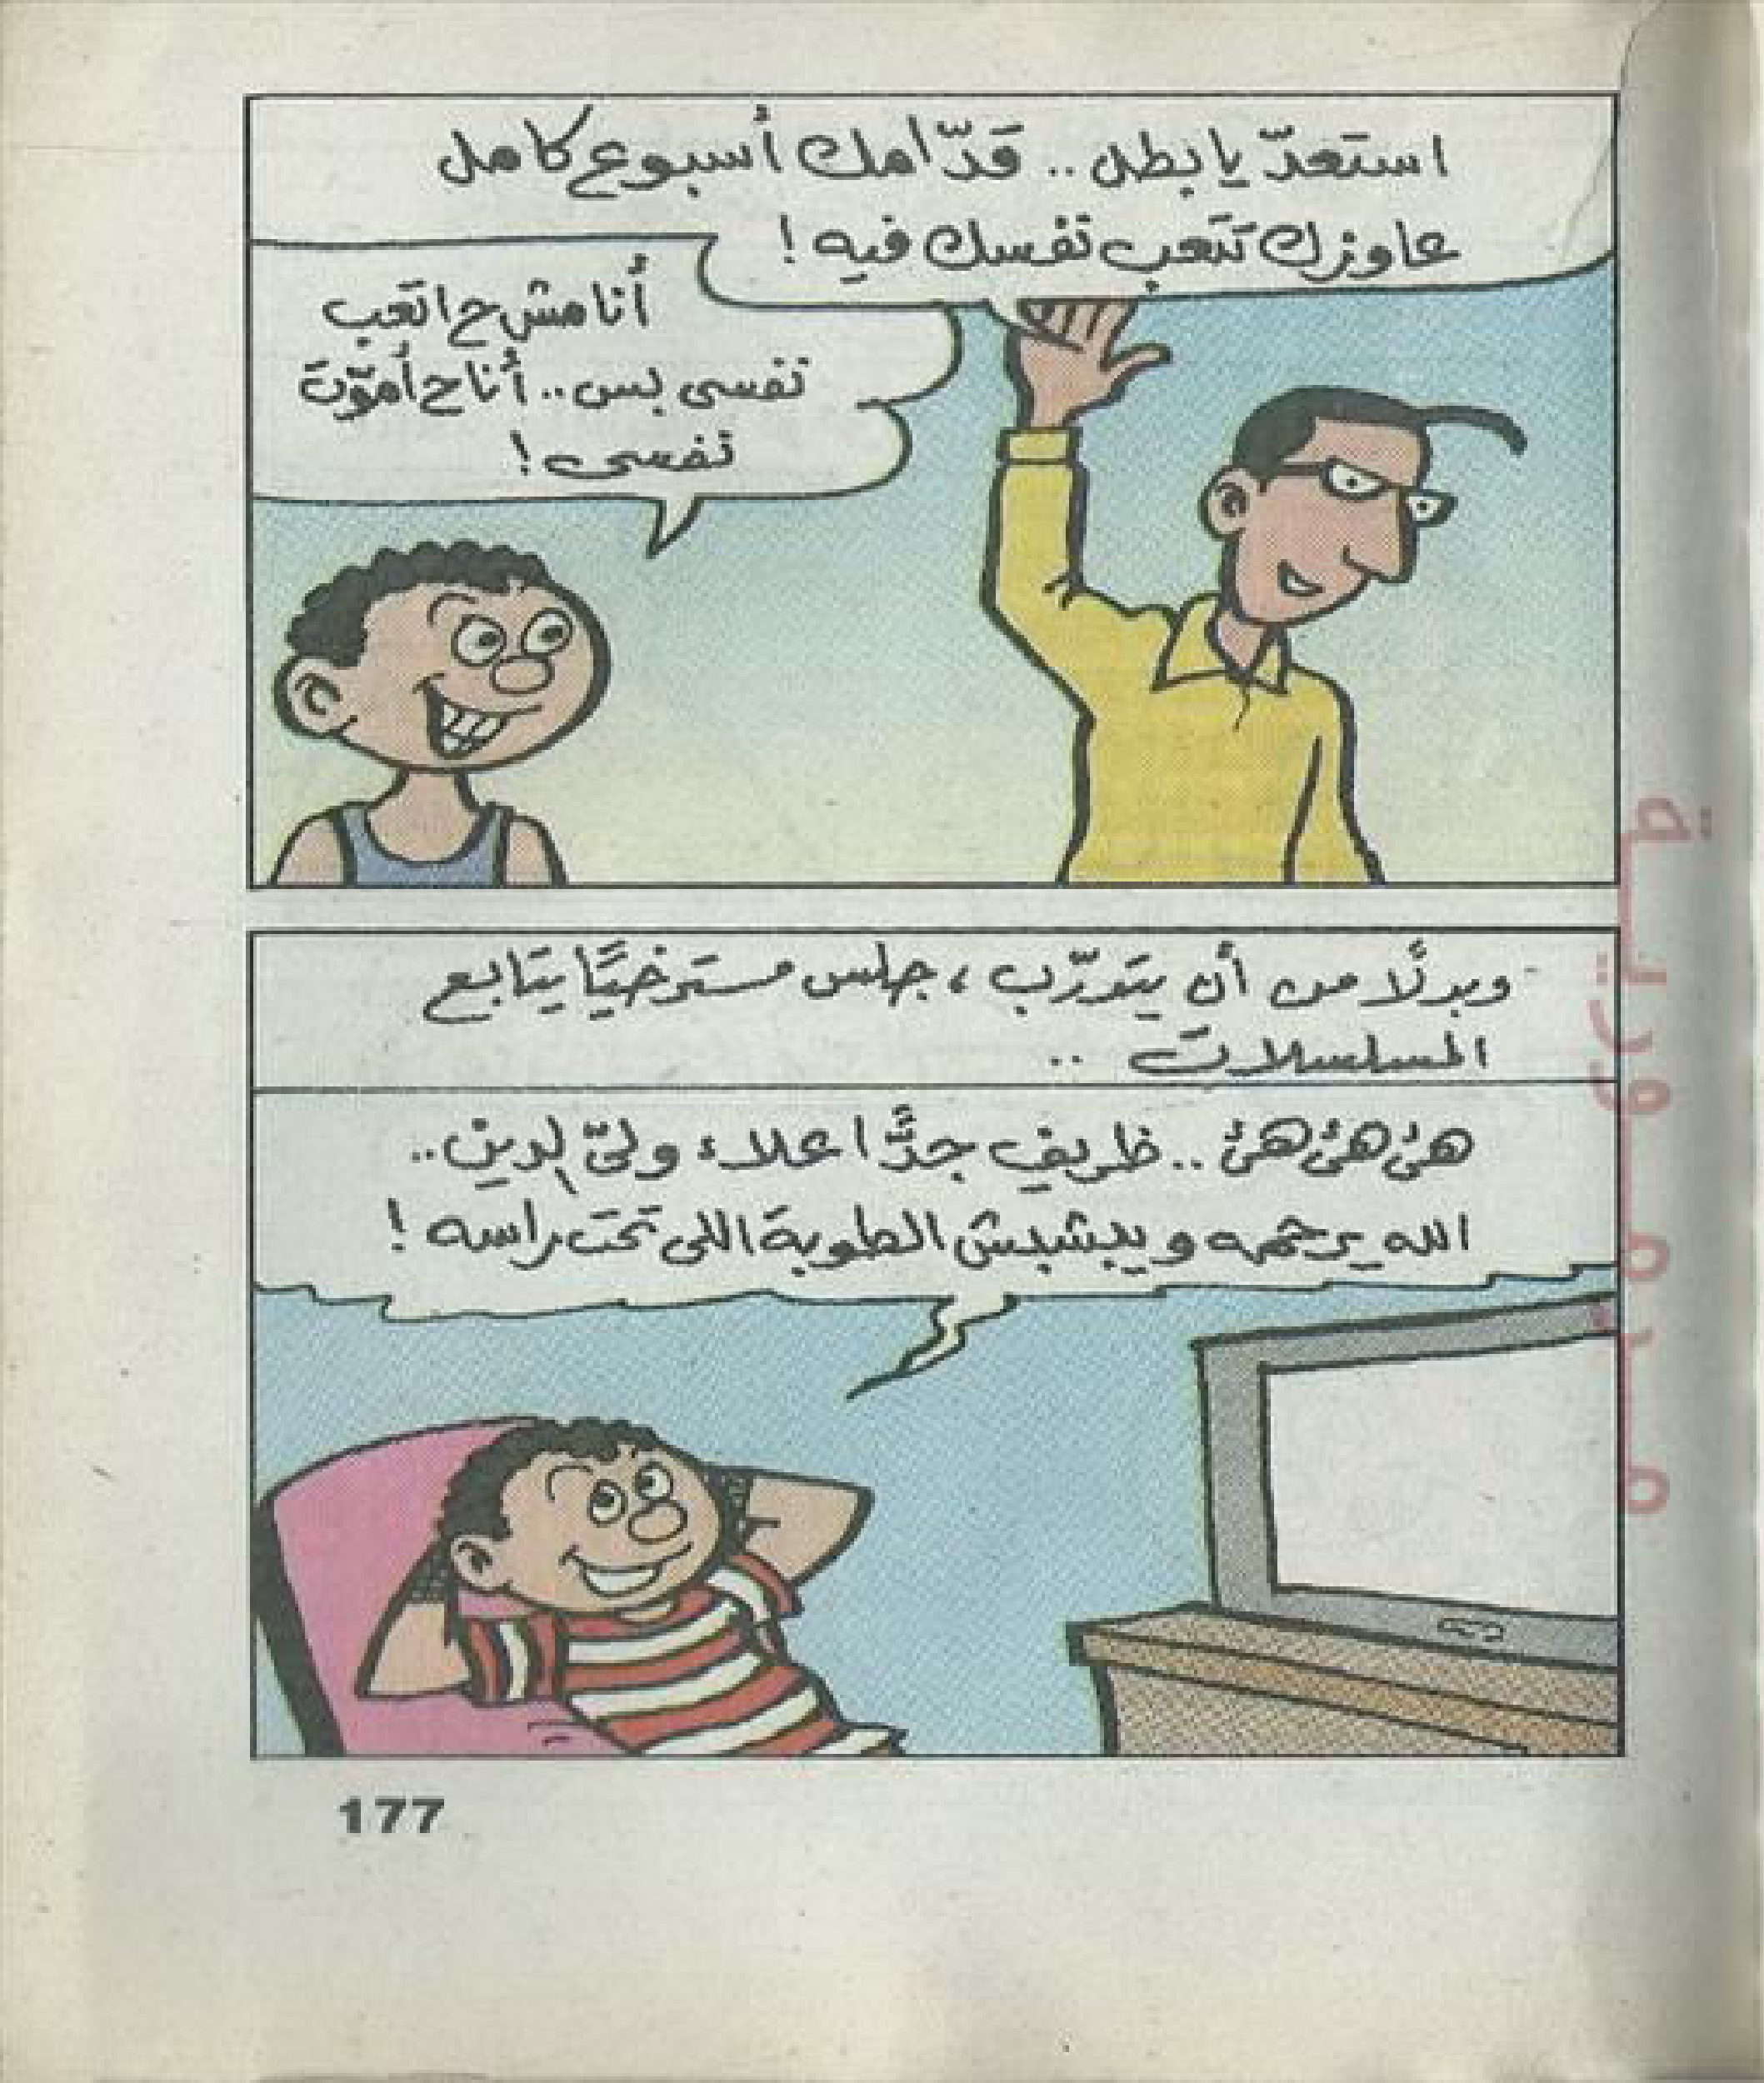 استعدّ يا بطل .. قدّامك أسبوع كامل
عاوزك تتعب نفسك فيه !
أنا مش ح اتعب
نفسى بس .. أنا ح أموّت
نفسى !
وبدلًا من أن يتدرّب ، جلس مسترخيًا يتابع
المسلسلات ..
هئ هئ هئ .. ظريف جدًّا علاء ولىّ الدين ..
الله يرحمه ويبشبش الطوبة اللى تحت راسه !
177